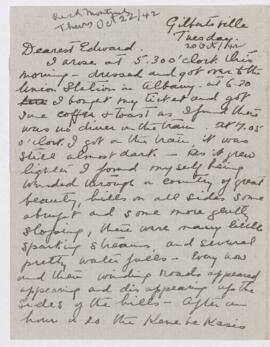 Gilbertsville
Tuesday.
20 Oct/42
Thurs Oct 22/42
Dearest Edward.
I arose at 5.30 o'clock this
morning - dressed and got over to the
Union Station in Albany at 6.30
I bought my ticket and got
some coffee & toast as I found there
was no diner on the train. At 7.05
o'clock I got on the train, it was
still almost dark - As it grew
lighter I found myself being
winded through a country of great
beauty, hills on all sides some
abrupt and some more gently
sloping, there were many little
sparkling streams, and several
pretty water falls - Every now
and then winding roads appeared
appearing and disappearing up the
sides of the hills - After an
hour or so the